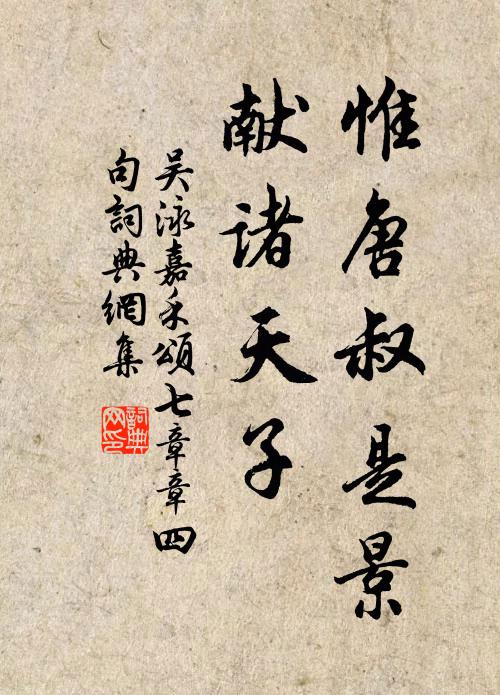 惟唐叔是景
献诸天子
吴泳嘉禾頌七章章四
句詞典網集
詞典网印